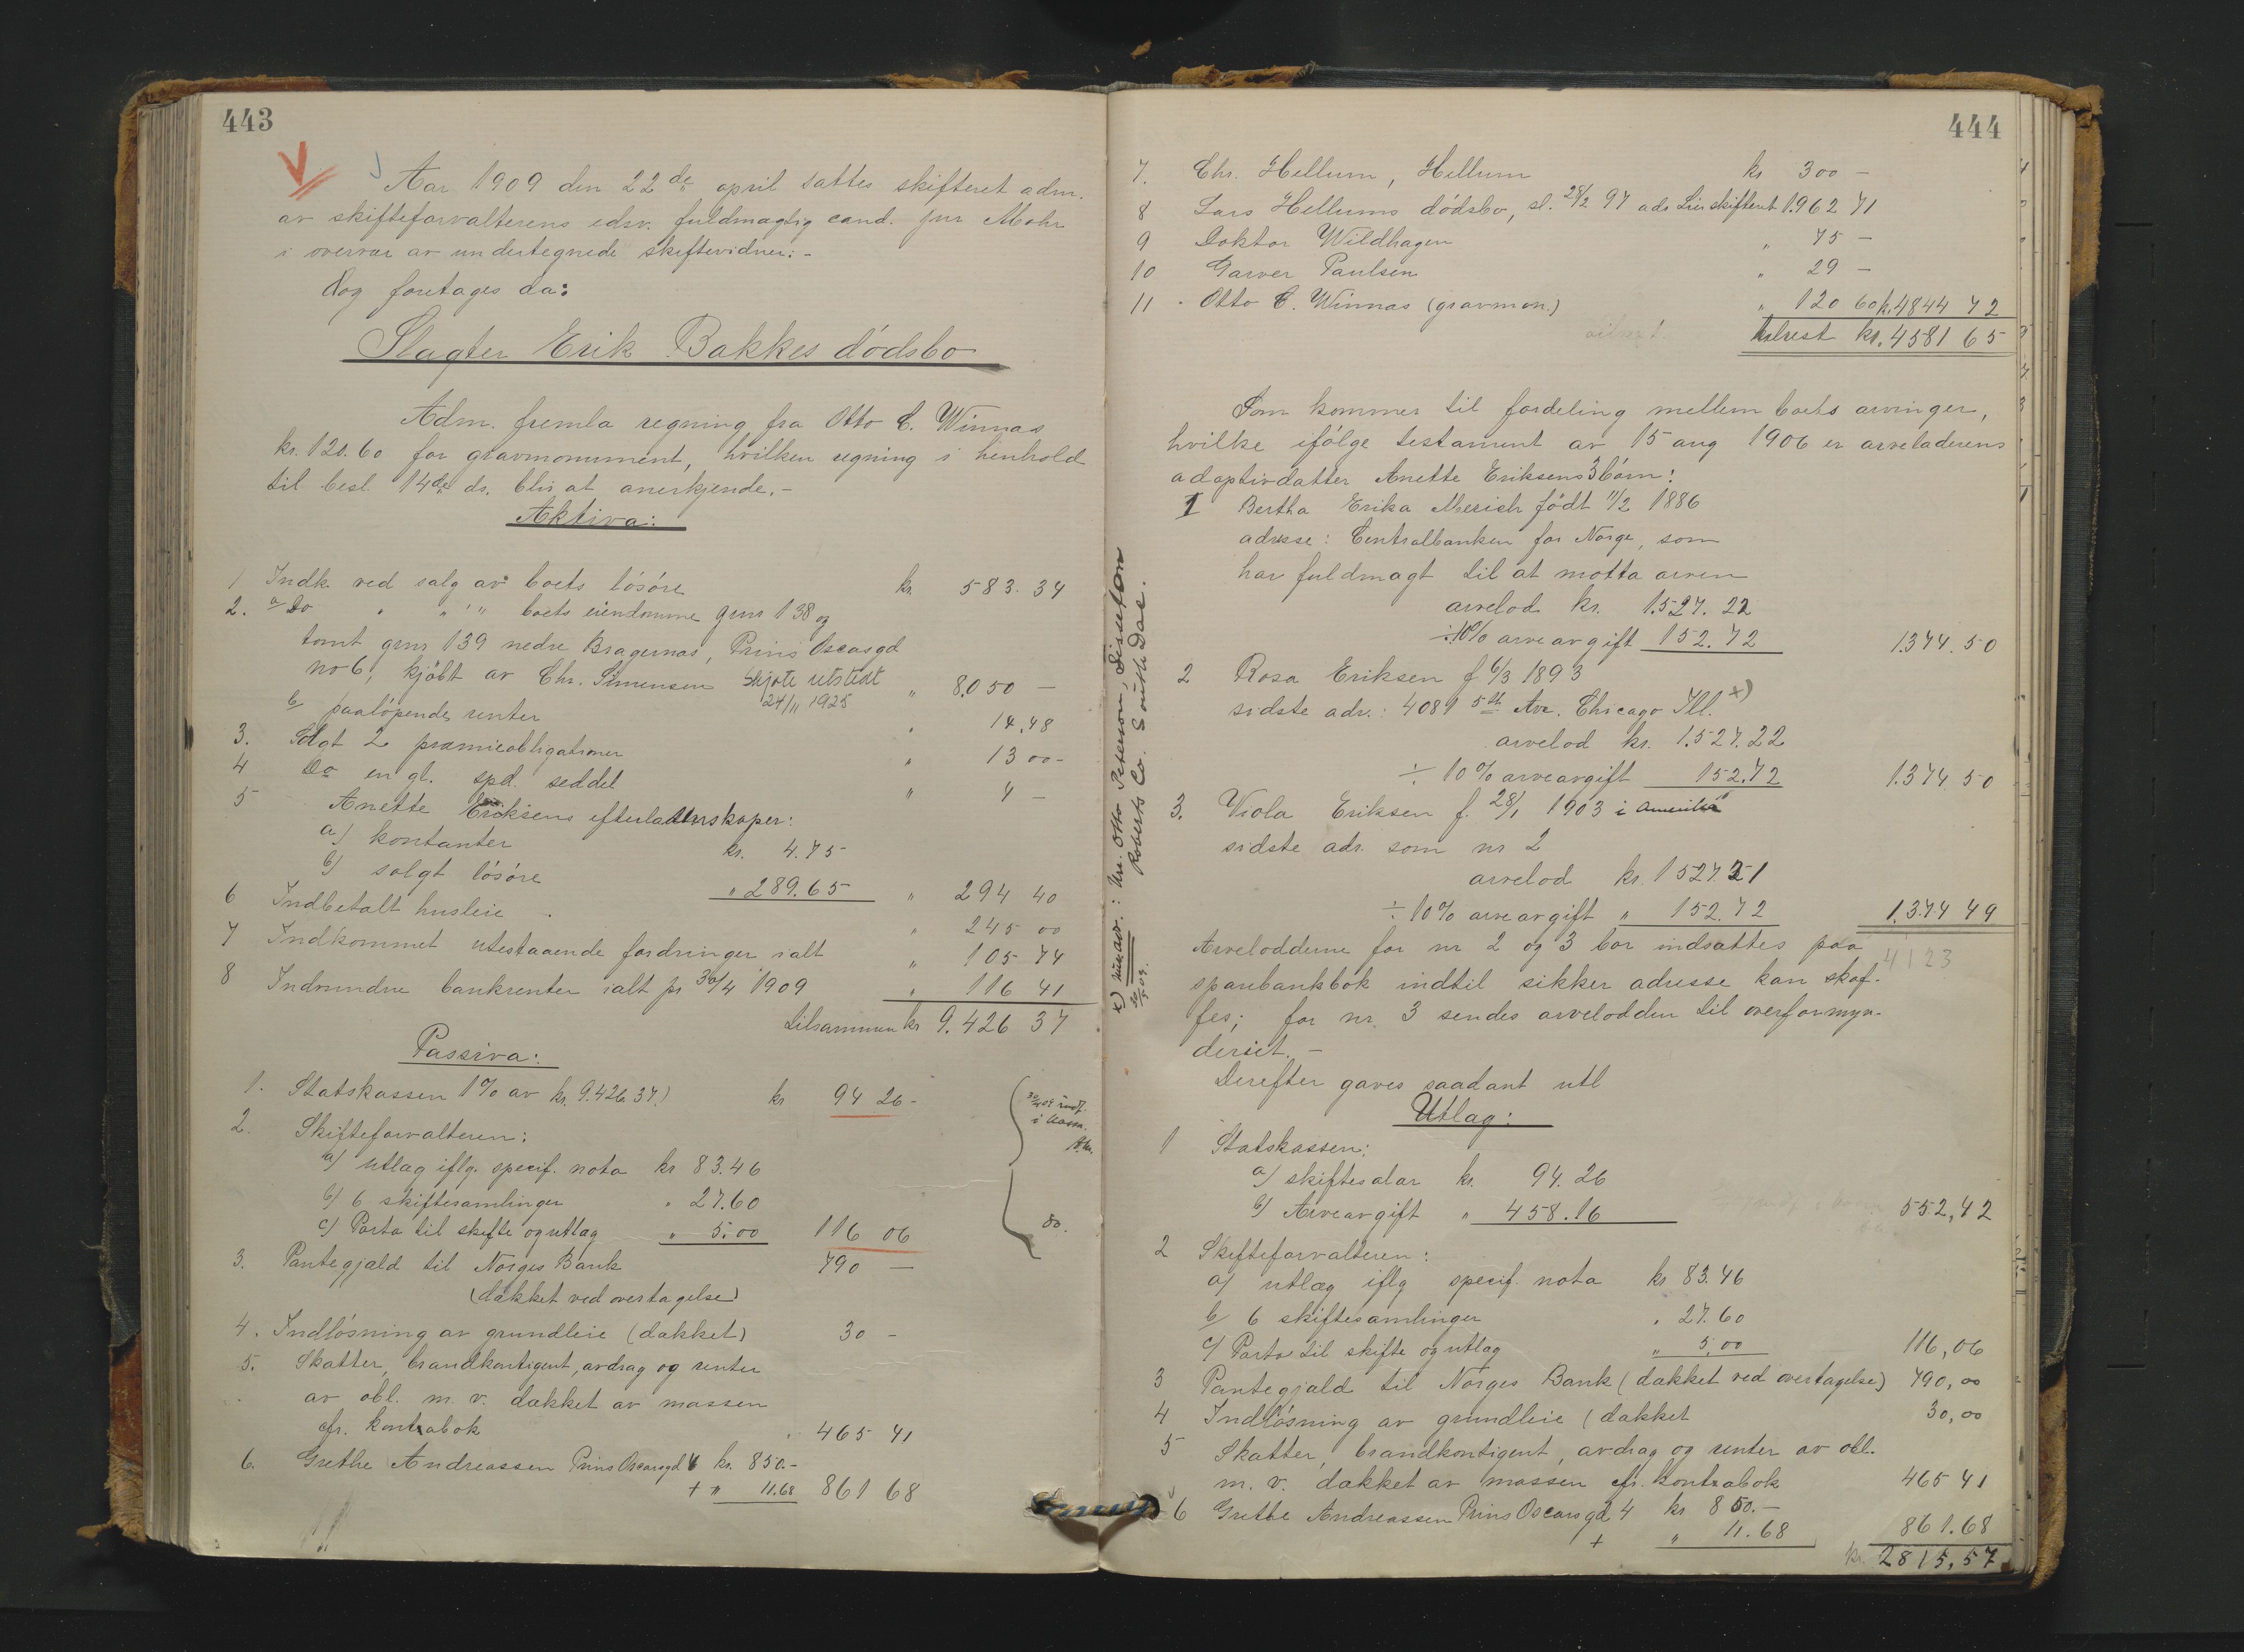 443
Aar 1909 den 22de april sattes skifteret adm.
av skifteforvalterens edsv. fuldmægtig cand. jur Mohr
i overvær av undertegnede skiftevidner: -
Dog foretages da:
Slagter Erik Bakkes dödsbo
Adm. fremla regning fra Otto C. Winnæs
kr. 120.60 for gravmonument, hvilken regning i henhold
til besl. 14de ds. blir at anerkjende. -
Aktiva:
1 Indk. ved salg av boets lösöre kr. 583.34
2. a Do " " " boets eiendomme grnr 138 og
tomt grnr 139 nedre Bragernæs, Prins Oscarsgd
no 6, kjöbt av Chr. Simensen Skjöte utstedt 24/11 1925 " 8.050 -
b paalöpende renter " 14,48
3. Solgt 2 præmieobligationer " 13 00 -
4 Do en gl. spd. seddel " 4 -
5 Anette Eriksens efterladenskaper:
a) kontanter kr. 4.75
b) solgt lösöre " 289.65 " 294 40
6 Indbetalt husleie " 245 00
7 Indkommet utestaaende fordringer ialt " 105 74
8 Indvundne bankrenter ialt pr 30/4 1909 " 116 41
tilsammen kr 9.426 37
Passiva:
1. Statskassen 1% av kr. 9.426 37.) kr 94 26 -
2. Skifteforvalteren:
a) utlæg iflg. specif. nota kr 83.46
b) 6 skiftesamlinger " 27.60
c) Porto til skifte og utlæg " 5.00 116 06
do.
3. Pantegjæld til Norges Bank 790 -
(dækket ved overtagelse)
4. Indlösning av grundleie (dækket) 30 -
5. Skatter, brandkontigent, avdrag og renter
av obl. m. v. dækket av massen
cfr. kontrabok " 465 41
6. Grethe Andreassen Prins Oscarsgd 4 kr. 850.-
+ " 11.68 861 68
444
7. Chr. Hellum, Hellum kr 300 -
8 Lars Hellums dödsbo, sl. 28/2 97 ads Lier skifteret 1.962 71
9 Doktor Wildhagen " 75 -
10 Garver Paulsen " 29 -
11 Otto C. Winnæs (gravmon.) " 120 60 kr. 4844 72
tilrest kr. 4581 65
Som kommer til fordeling mellem boets arvinger,
hvilke ifölge testament av 15 aug 1906 er arveladerens
adoptivdatter Anette Eriksens 3 börn:
1 Bertha Erika födt 11/2 1886
adresse: Centralbanken for Norge, som
har fuldmagt til at motta arven
arvelod kr. 1.527.22
÷ 10% arveavgift 152.72 1.374.50
2 Rosa Eriksen f 6/3 1893
sidste adr.: 4081 5th Ave. Chicago Ill. x)
arvelod kr. 1.527.22
÷ 10% arveavgift 152.72 1.374 50
3. Viola Eriksen f. 28/1 1903 i Amerika
sidste adr. som nr 2
arvelod kr. 1527 21
÷ 10% arveavgift " 152.72 1.374 49
4123
Arveloddene for nr 2 og 3 bör indsættes paa
sparebankbok indtil sikker adresse kan skaf-
fes; for nr 3 sendes arvelodden til overformyn-
deriet. -
Derefter gaves saadant utl
Utlæg:
1 Statskassen:
a) skiftesalær kr. 94.26
b) Arveavgift " 458.16 552,42
2 Skifteforvalteren:
a) utlæg iflg specif. nota kr 83.46
b 6 skiftesamlinger " 27.60
c) Porto til skifte og utlæg " 5.00 116,06
3 Pantegjæld til Norges Bank (dækket ved overtagelse) 790,00
4 Indlösning av grundleie (dækket 30,00
5 Skatter, brandkontigent, avdrag og renter av obl.
m. v. dækket av massen cfr. kontrabok 465 41
6 Grethe Andreassen Prins Oscarsgd 4 kr 850.-
+ " 11.68 861.68
kr. 2815,57
x) nuv. adr.: Mrs. Otto Peterson, Sisseton
Roberts Co. South Dac.